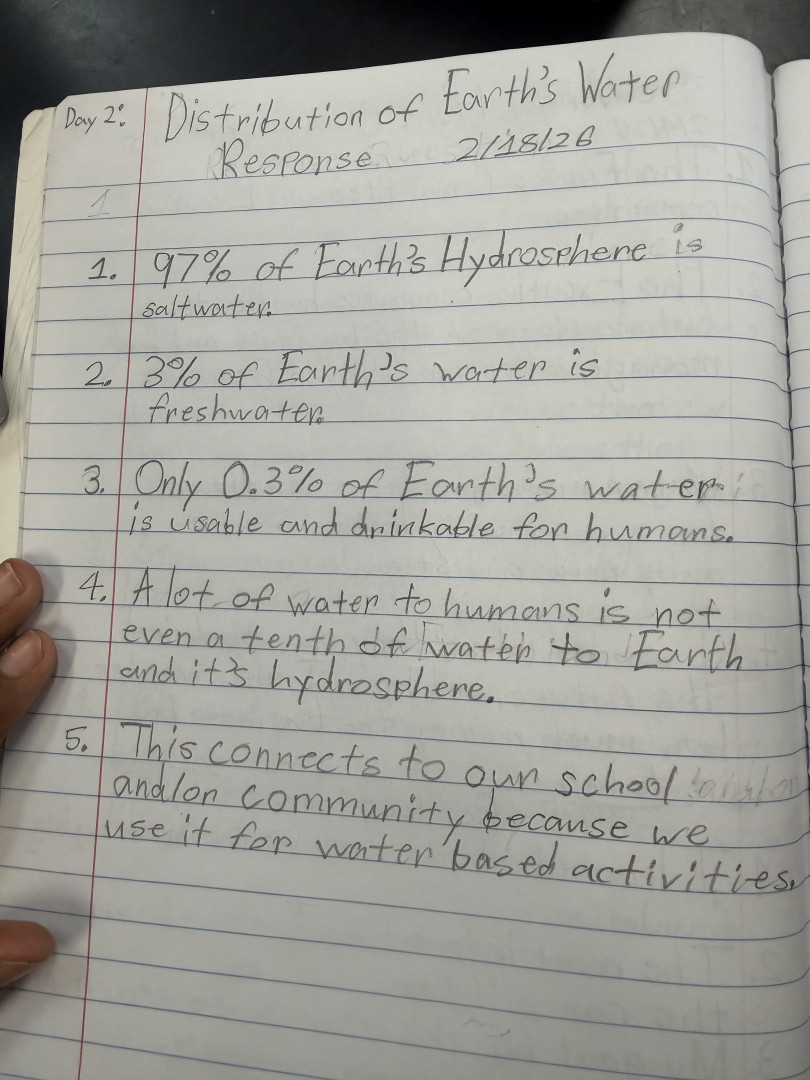 Day 2: Distribution of Earth's Water
Response 2/18/26
1
1. 97% of Earth's Hydrosphere is
saltwater.
2. 3% of Earth's water is
freshwater.
3. Only 0.3% of Earth's water
is usable and drinkable for humans.
4. A lot of water to humans is not
even a tenth of water to Earth
and it's hydrosphere.
5. This connects to our school
and/or community because we
use it for water based activities.